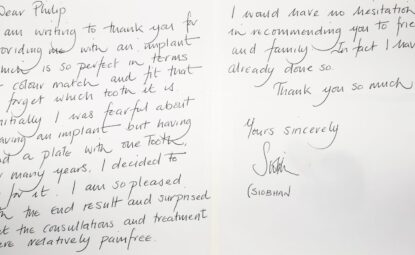 Dear Philip
am writing to thank you for
oviding me with an implant
hich is so perfect in terms
colour match and fit that
forget which tooth it is.
nitially I was fearful about
aving an implant but having
ad a plate with one tooth,
r many years, I decided to
for it! I am so pleased
th the end result and surprised
at the consultations and treatment
ere relatively painfree.
I would have no hesitation
in recommending you to frie
and family. In fact I have
already done so.
Thank you so much
Yours sincerely
(SIOBHAN